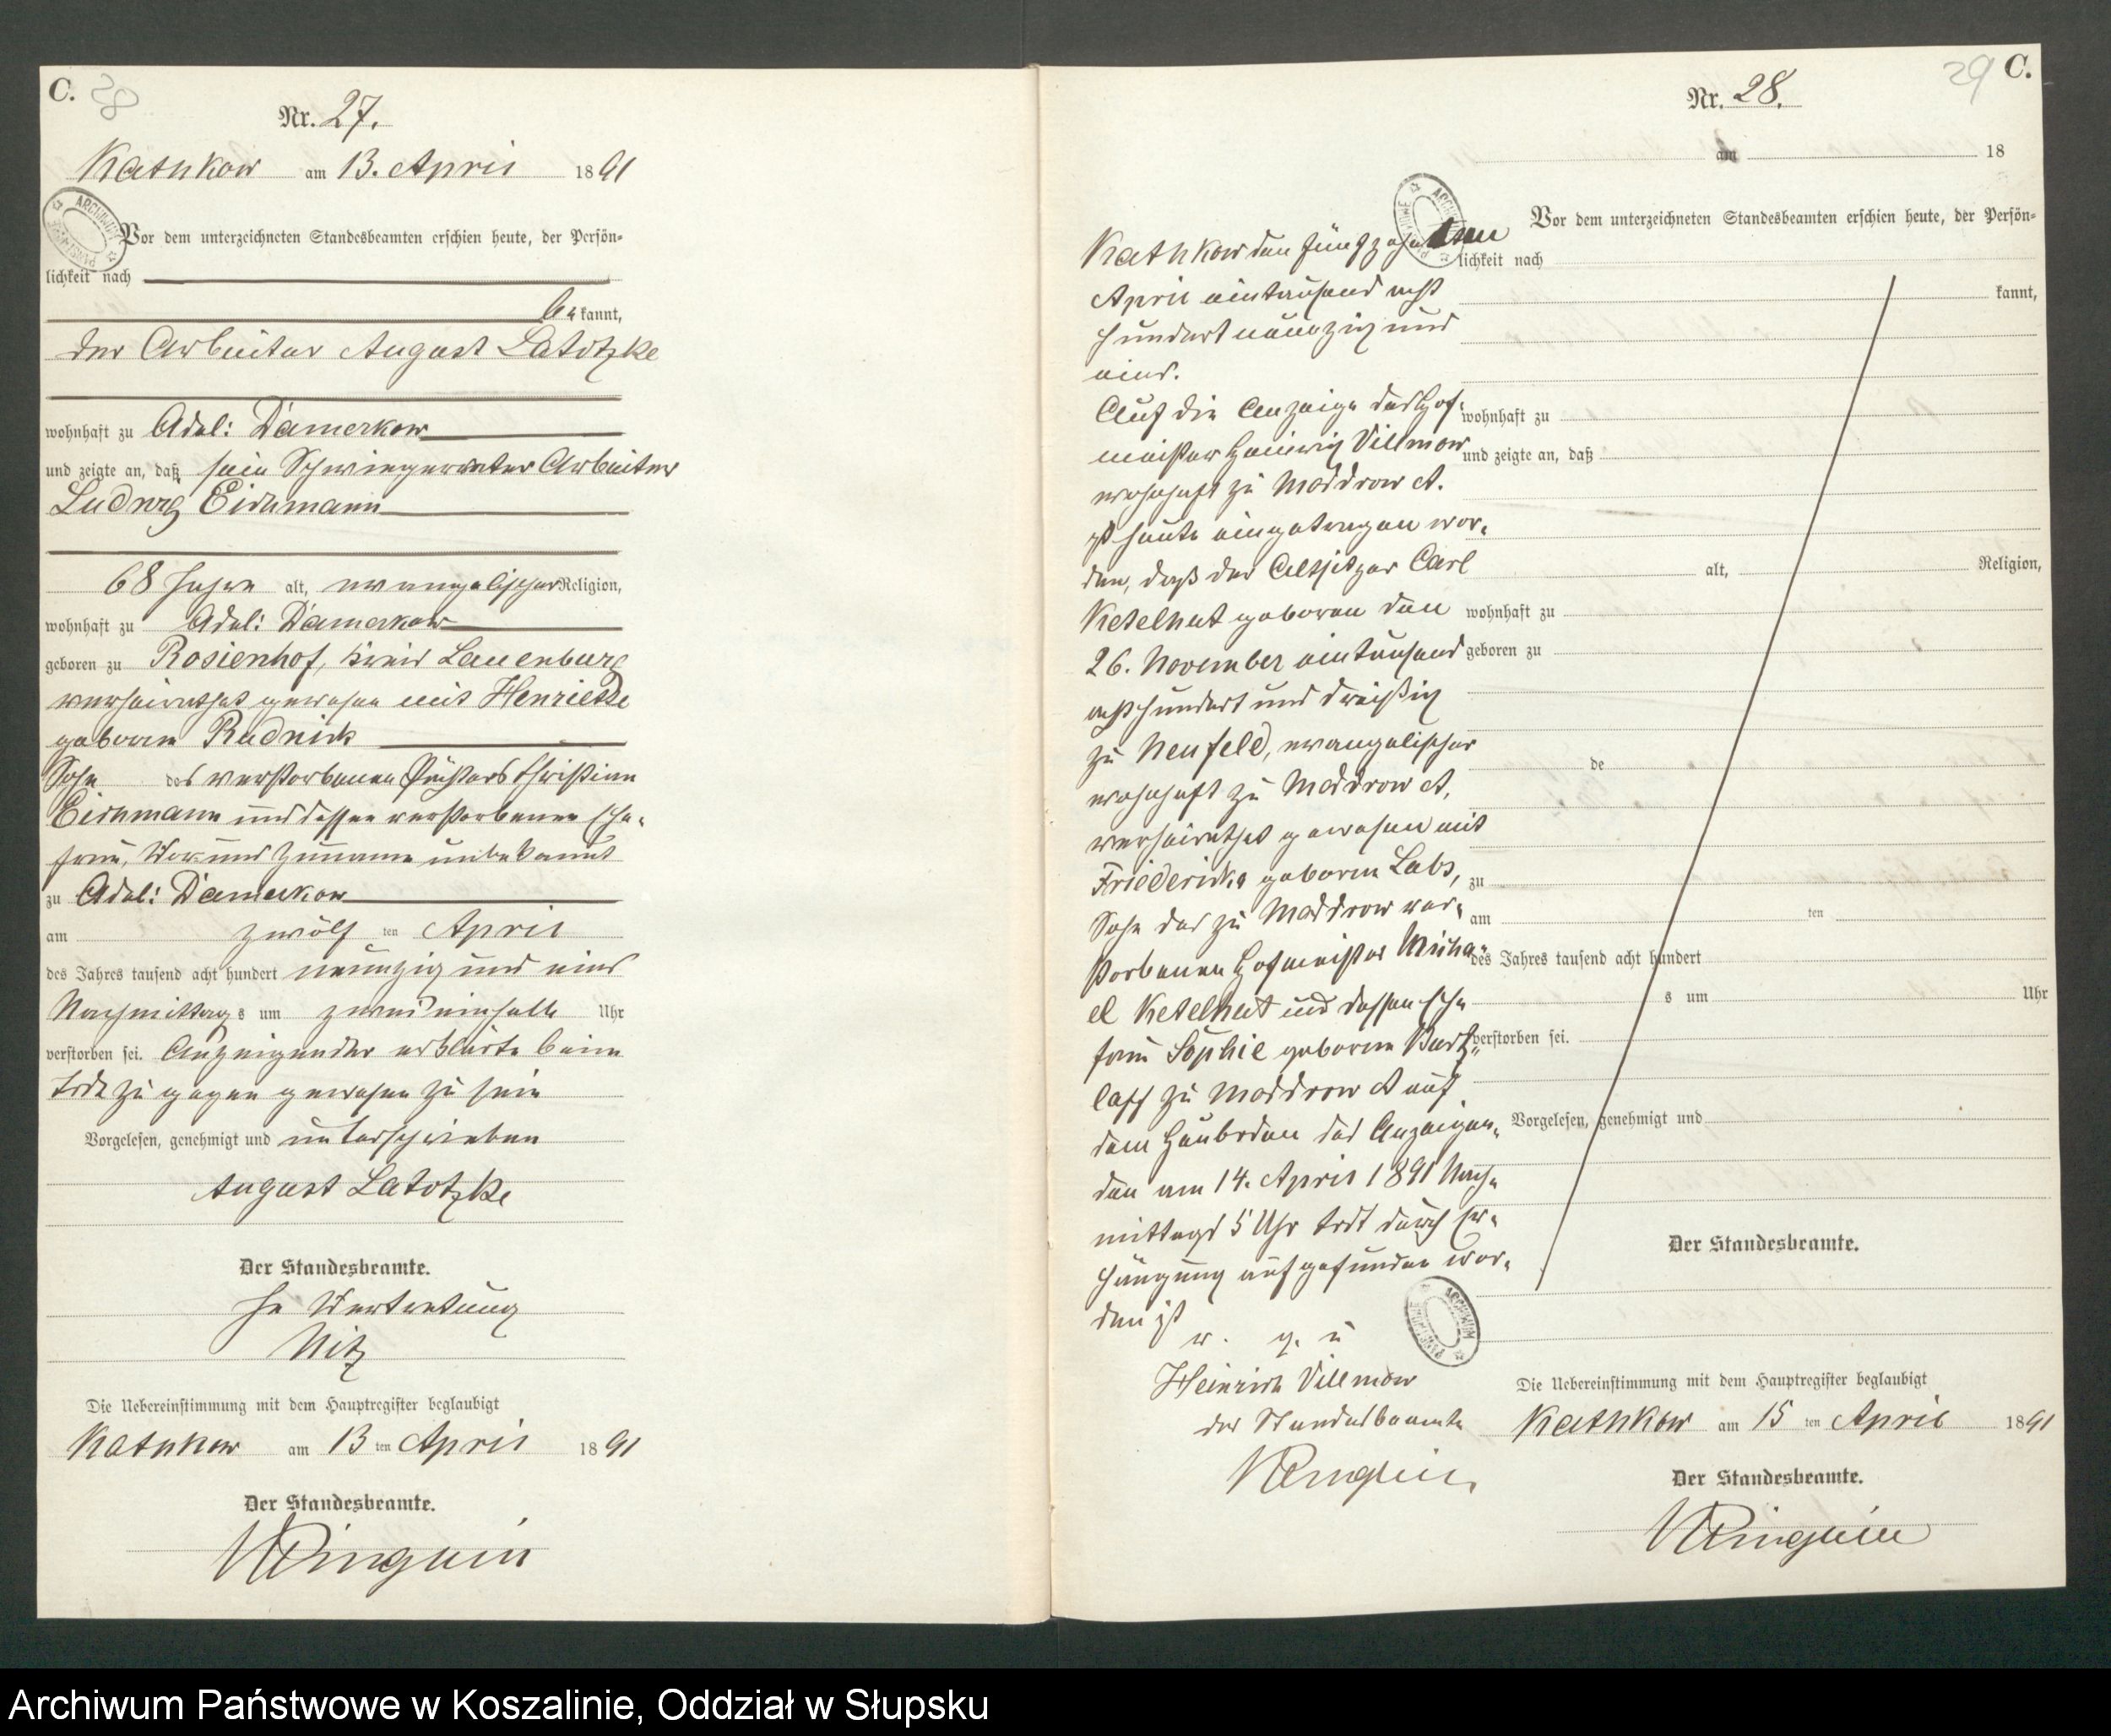 C. 28
Nr. 27.
Kathkow am 13. April 1891
Vor dem unterzeichneten Standesbeamten erschien heute, der Persön-
lichkeit nach
be kannt,
der Arbeiter August Latotzke
wohnhaft zu Adel: Damerkow
und zeigte an, daß sein Schwiegervater Arbeiter
Ludwig Eichmann
68 Jahre alt, evangelischer Religion,
wohnhaft zu Adel: Damerkow
geboren zu Rosienhof, Kreis Lauenburg
verheirathet gewesen mit Henriette
geborne Rudnick
Sohn des verstorbenen Christian
Eichmann und dessen verstorbenen Ehe-
frau, Vor und Zuname unbekannt
zu Adel: Damerkow
am zwölf ten April
des Jahres tausend acht hundert neunzig und eins
Nachmittag s um zwei einhalb Uhr
verstorben sei. Anzeigender erklärte beim
Tode zugegen gewesen zu sein
Vorgelesen, genehmigt und unterschrieben
August Latotzke
Der Standesbeamte.
In Vertretung
Nitz
Die Uebereinstimmung mit dem Hauptregister beglaubigt
Kathkow am 13 ten April 1891
Der Standesbeamte.
29 C.
Nr. 28.
am 18
Vor dem unterzeichneten Standesbeamten erschien heute, der Persön-
lichkeit nach
kannt,
wohnhaft zu
und zeigte an, daß
alt, Religion,
wohnhaft zu
geboren zu
de
zu
am ten
des Jahres tausend acht hundert
s um Uhr
verstorben sei.
Vorgelesen, genehmigt und
Der Standesbeamte.
Kathkow den fünfzehnten
April eintausend acht
hundert neunzig und
eins.
Auf die Anzeige des Hof-
meister Heinrich Villmow
wohnhaft zu Moddrow A.
ist heute eingetragen wor-
den, daß der Altsitzer Carl
Ketelhut geboren den
26. November eintausend
achthundert und dreißig
zu Neufeld, evangelischer
wohnhaft zu Moddrow A,
verheirathet gewesen mit
Friedericke geborne Labs,
Sohn des zu Moddrow ver-
storbenen Hofmeister Micha-
el Ketelhut und dessen Ehe
frau Sophie geborne Bartz-
laff zu Moddrow A auf
dem Heuboden des Anzeigen-
den am 14. April 1891 Nach-
mittags 5 Uhr todt durch Er-
hängung aufgefunden wor-
den ist
v. g. u
Heinrich Villmow
der Standesbeamte
Die Uebereinstimmung mit dem Hauptregister beglaubigt
Kathkow am 15 ten April 1891
Der Standesbeamte.
Archiwum Państwowe w Koszalinie, Oddział w Słupsku